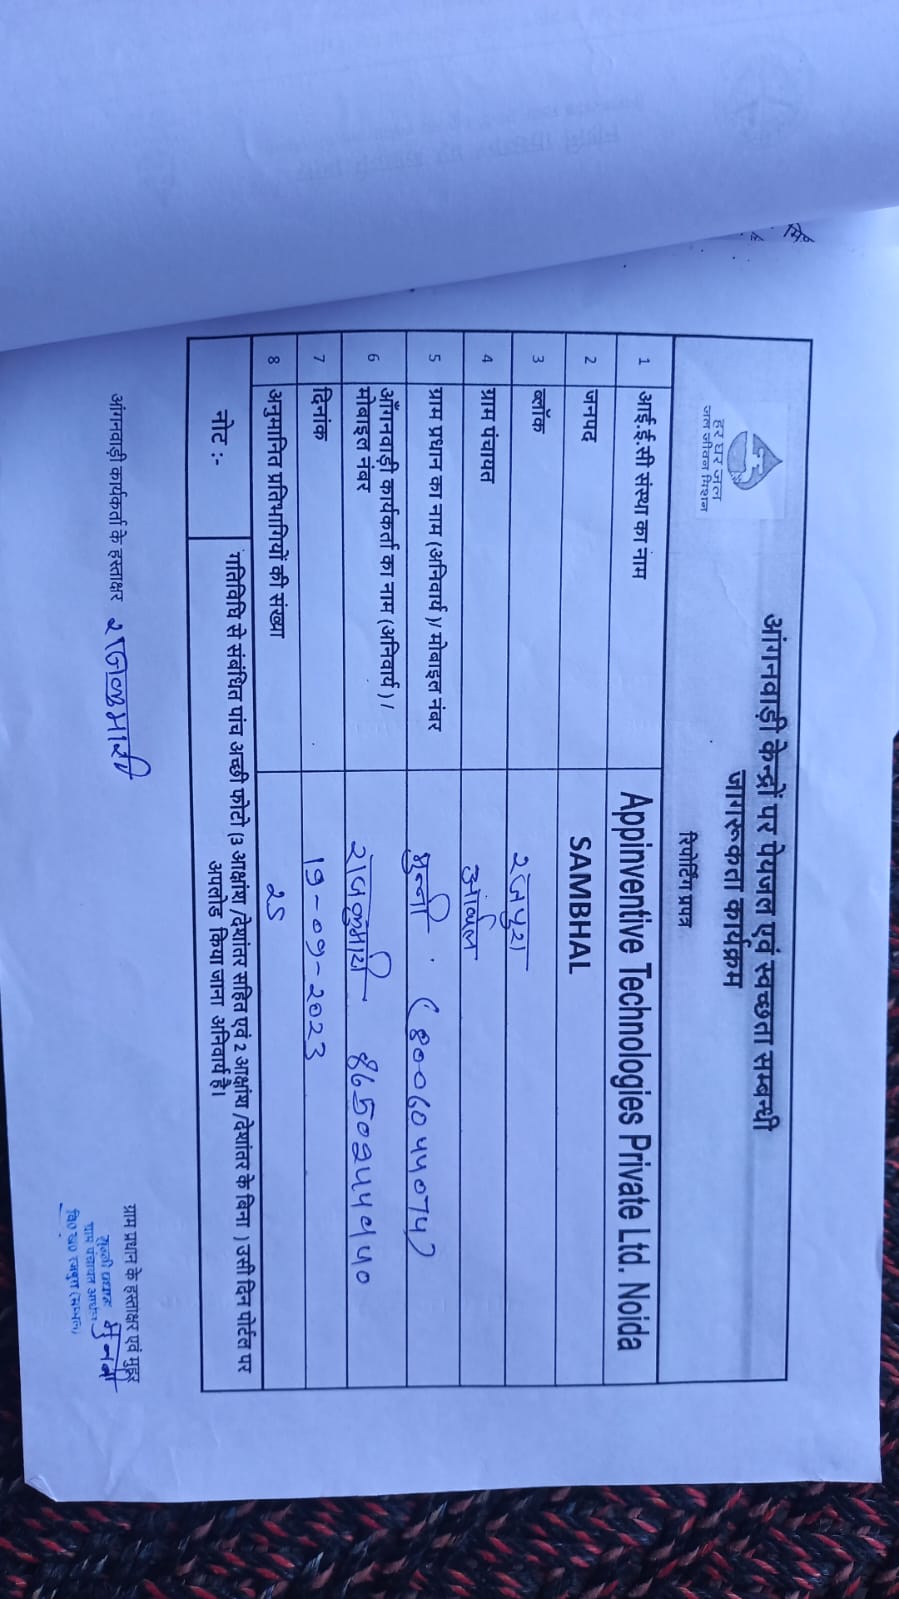 हर घर जल
जल जीवन मिशन
आंगनवाड़ी केन्द्रों पर पेयजल एवं स्वच्छता सम्बन्धी
जागरूकता कार्यक्रम
रिपोर्टिंग प्रपत्र
1 आई.ई.सी संस्था का नाम Appinventive Technologies Private Ltd. Noida
2 जनपद SAMBHAL
3 ब्लॉक रजपुरा
4 ग्राम पंचायत
5 ग्राम प्रधान का नाम (अनिवार्य )/ मोबाइल नंबर मुन्नी
6 आँगनवाड़ी कार्यकर्ता का नाम (अनिवार्य ) /
मोबाइल नंबर राजकुमारी
7 दिनांक 19-09-2023
8 अनुमानित प्रतिभागियों की संख्या 25
नोट :- गतिविधि से संबंधित पांच अच्छी फोटो (3 अक्षांश /देशांतर सहित एवं 2 आक्षांश /देशांतर के बिना ) उसी दिन पोर्टल पर
अपलोड किया जाना अनिवार्य है।
आंगनवाड़ी कार्यकर्ता के हस्ताक्षर राजकुमारी
ग्राम प्रधान के हस्ताक्षर एवं मुहर